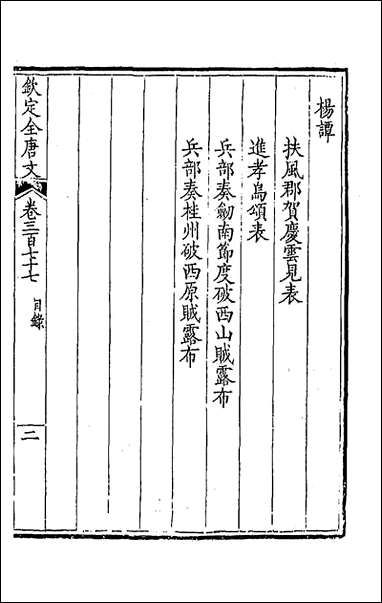 楊譚
扶風郡賀慶雲見表
進孝鳥頌表
兵部奏劒南節度破西山賊露布
兵部奏桂州破西原賊露布
欽定全唐文
卷三百七十七
目錄
二